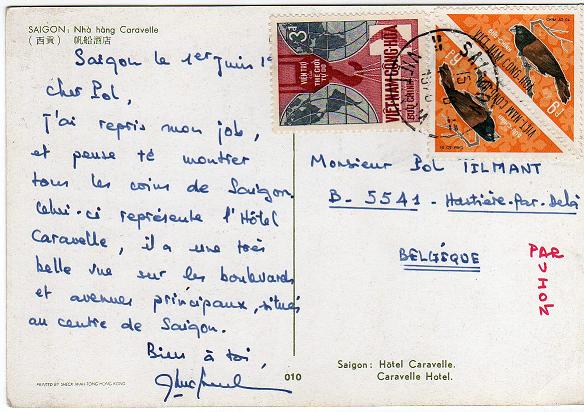 SAIGON: Nhà hàng Caravelle
(西貢) 帆船酒店
Saigon le 1er Juin
cher Pol,
J'ai repris mon job,
et pense te montrer
tous les coins de Saigon.
Celui-ci représente l'Hôtel
Caravelle, il a une très
belle vue sur les boulevards
et avenues principaux, situés
au centre de Saigon.
Bien à toi,
PRINTED BY SHECK WAH TONG HONG KONG
3đ
VIỆN TRỢ THẾ GIỚI TỰ DO
VIỆT-NAM CỘNG-HÒA
BƯU-CHÍNH
VIỆT-NAM CỘNG-HÒA
VIỆT-NAM CỘNG-HÒA
Monsieur Pol TILMANT
B-5541-Hastière-Par-Delà
BELGÉQUE
PAR
AVION
010
Saigon: Hôtel Caravelle.
Caravelle Hotel.